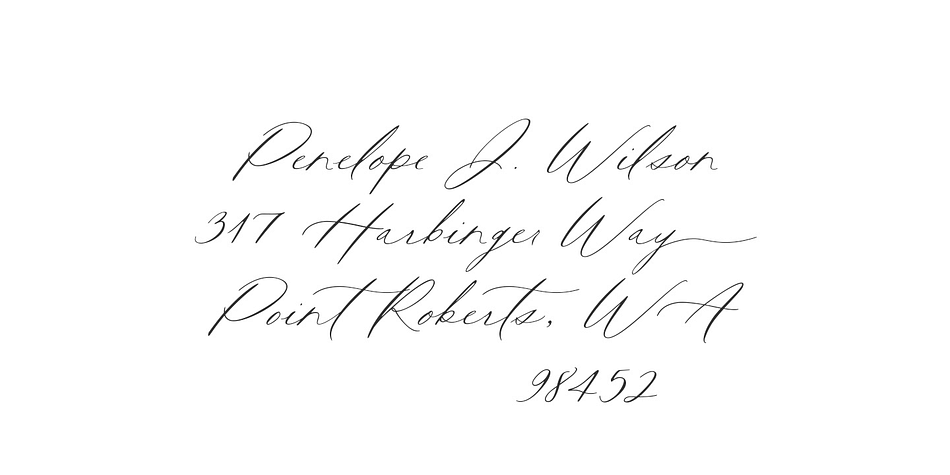 Penelope J. Wilson
317 Harbinger Way
Point Roberts, WA
98452